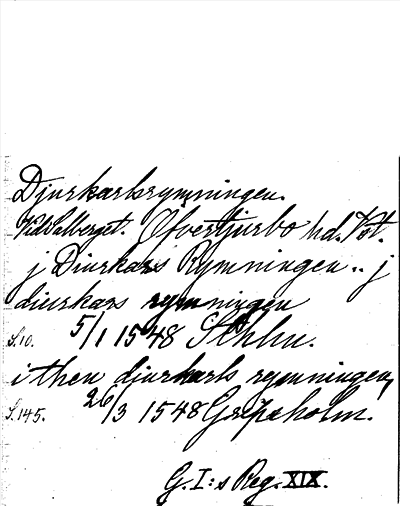 Djurkarlsrymningen.
Vid Salberget. Öfvertjurbo hd. Vst.
j Diurkars Rymningen .. j
diurkars rymningen
S. 10. 5/1 1548 Sthlm.
i then djurkarls rymningen,
S. 145. 26/3 1548 Gripsholm.
G. I:s Reg. XIX.